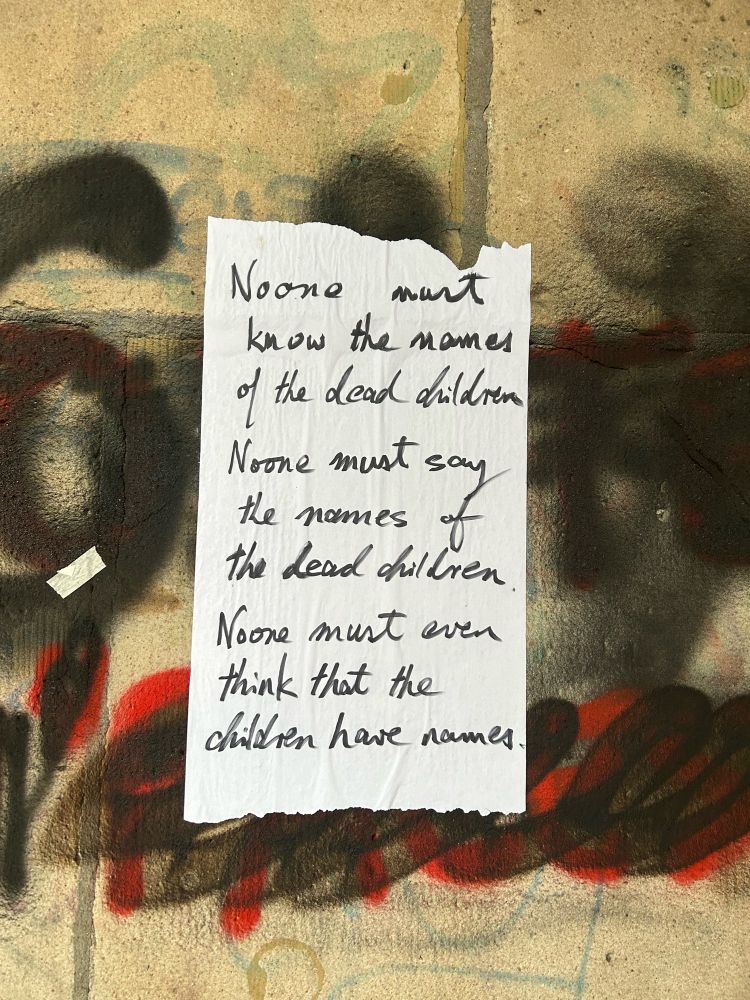 Noone must
know the names
of the dead children
Noone must say
the names of
the dead children.
Noone must even
think that the
children have names.